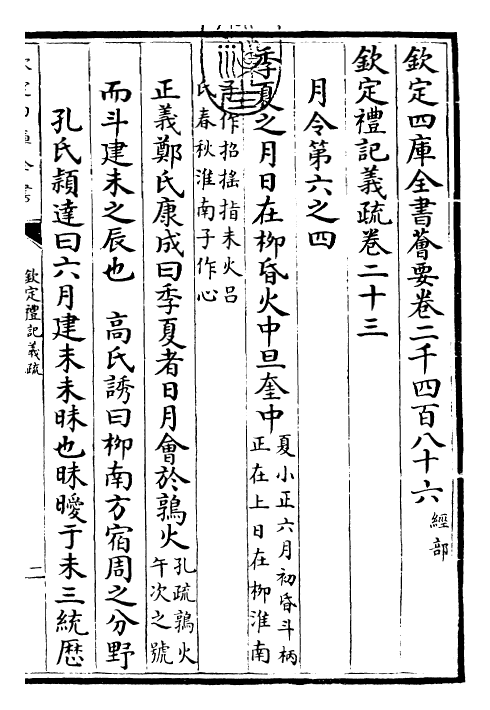 欽定四庫全書薈要卷二千四百八十六經部
欽定禮記義疏卷二十三
月令第六之四
季夏之月日在柳昏火中旦奎中夏小正六月初昏斗柄正在上日在柳淮南
子作招搖指未火呂氏春秋淮南子作心
正義鄭氏康成曰季夏者日月會於鶉火孔疏鶉火午次之號
而斗建未之辰也 高氏誘曰柳南方宿周之分野
孔氏頴達曰六月建未未昧也昧曖于未三統歴
欽定四庫全書
欽定禮記義疏
二